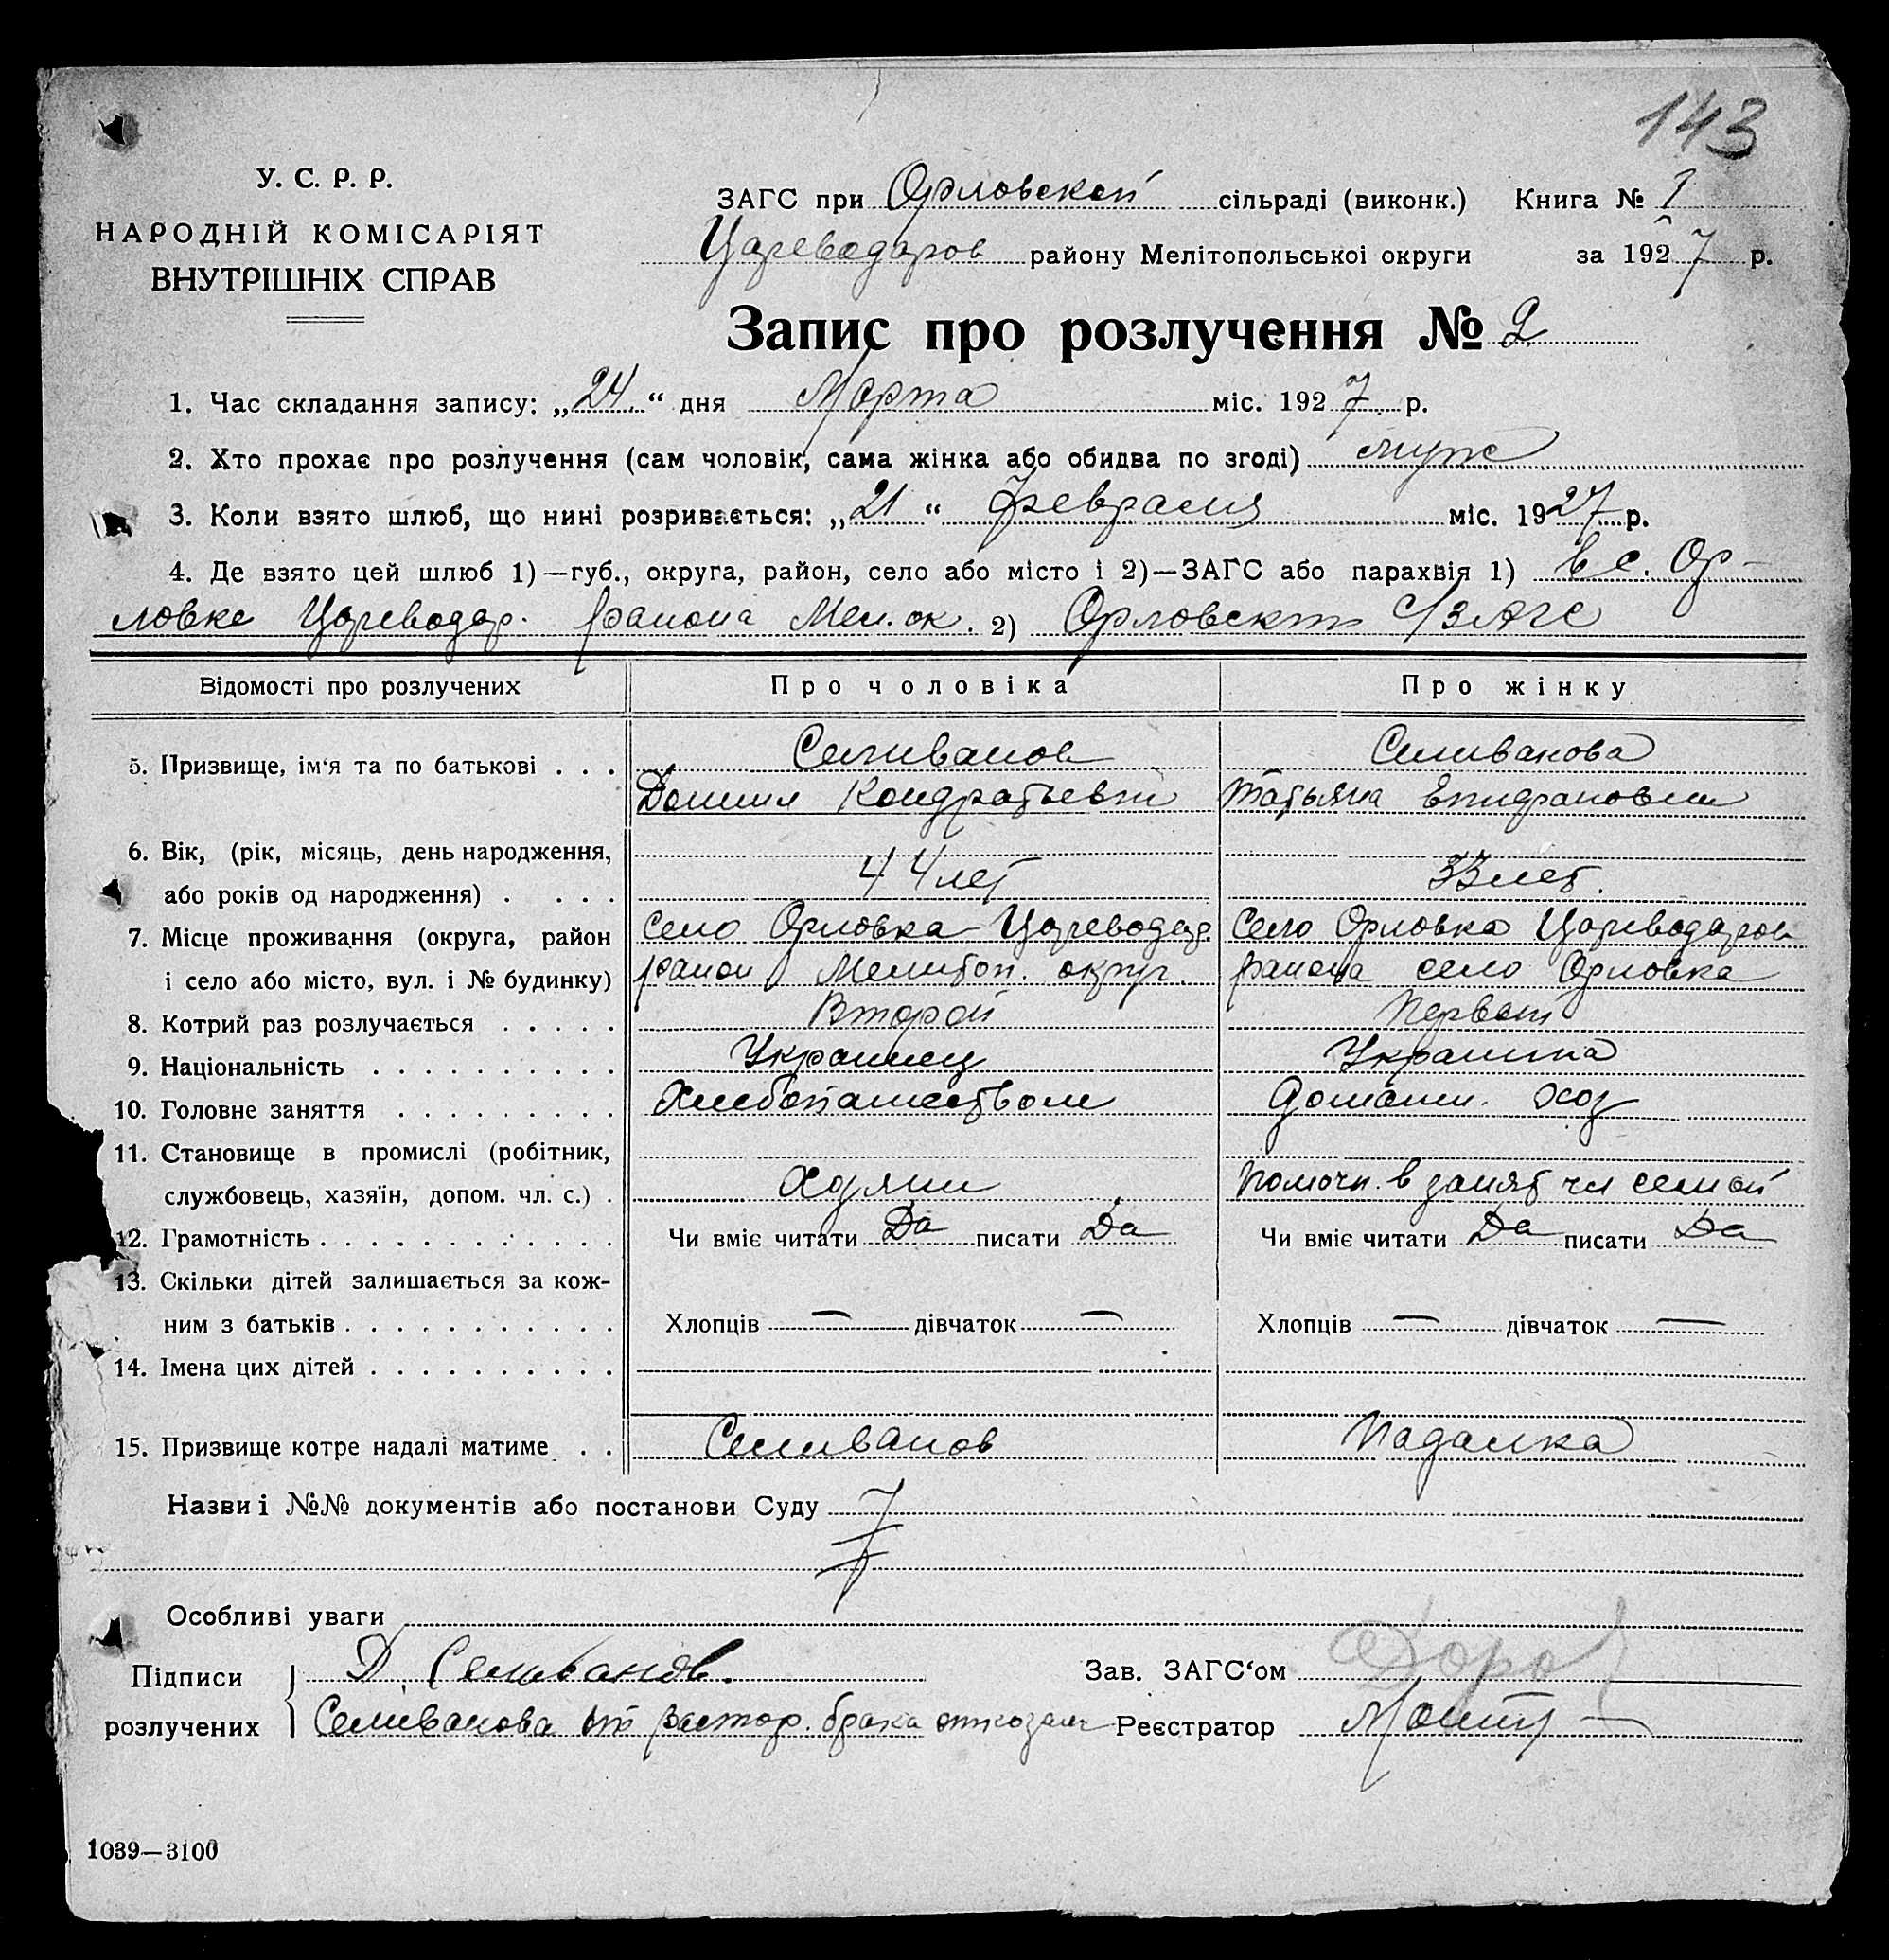 143
У. С. Р. Р.
НАРОДНІЙ КОМІСАРІЯТ
ВНУТРІШНІХ СПРАВ
ЗАГС при Орловской сільраді (виконк.) Книга № 1
Цареводаров району Мелітопольської округи за 1927 р.
Запис про розлучення № 2
1. Час складання запису: „24.“ дня Марта міс. 1927 р.
2. Хто прохає про розлучення (сам чоловік, сама жінка або обидва по згоді) муж
3. Коли взято шлюб, що нині розривається: „21“ февраля міс. 1927 р.
4. Де взято цей шлюб 1)—губ., округа, район, село або місто і 2)—ЗАГС або парахвія 1) в с. Ор-
ловке Цареводар. района Мел. ок. 2) Орловском С/ЗАГС
Відомості про розлучених Про чоловіка Про жінку
5. Призвище, ім‘я та по батькові . . . Селиванов Селиванова
Даниил Кондратьевич Татьяна Епифановна
6. Вік, (рік, місяць, день народження,
або років од народження) . . . . 44 лет 33 лет.
7. Місце проживання (округа, район село Орловка Цареводар. Село Орловка Цареводаров
і село або місто, вул. і № будинку) район Мелитоп. округ. района село Орловка
8. Котрий раз розлучається . . . . . Второй Первый
9. Національність . . . . . . . . . . Украинец Украинка
10. Головне заняття . . . . . . . . . Хлебопашеством Домашн. хоз
11. Становище в промислі (робітник,
службовець, хазяїн, допом. чл. с.) . Хозяин помочн. в занят чл семьи
12. Грамотність . . . . . . . . . . . . Чи вміє читати Да писати Да Чи вміє читати Да писати Да
13. Скільки дітей залишається за кож-
ним з батьків . . . . . . . . . . . Хлопців — дівчаток — Хлопців — дівчаток —
14. Імена цих дітей . . . . . . . . . .
15. Призвище котре надалі матиме . . Селиванов Падалка
Назви і №№ документів або постанови Суду
Особливі уваги
Підписи Д. Селиванов. Зав. ЗАГС‘ом
розлучених Селиванова от растор. брака отказал Реєстратор
1039—3100